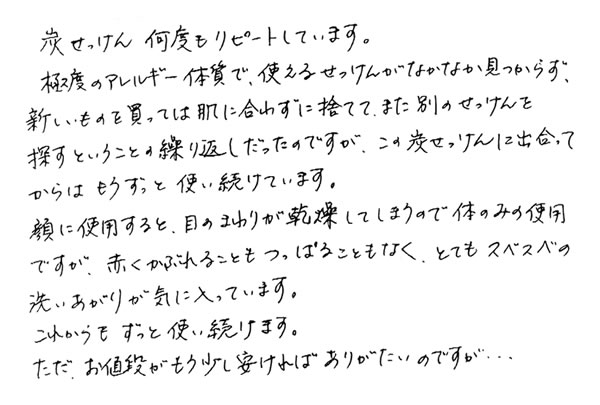 炭せっけん 何度もリピートしています。
極度のアレルギー体質で、使えるせっけんがなかなか見つからず、
新しいものを買っては肌に合わずに捨てて、また別のせっけんを
探すということの繰り返しだったのですが、この炭せっけんに出合って
からは もうずっと 使い続けています。
顔に使用すると、目のまわりが乾燥してしまうので体のみの使用
ですが、赤くかぶれることも つっぱることもなく、とても スベスベの
洗いあがりが気に入っています。
これからも ずっと 使い続けます。
ただ、お値段がもう少し安ければ ありがたいのですが・・・